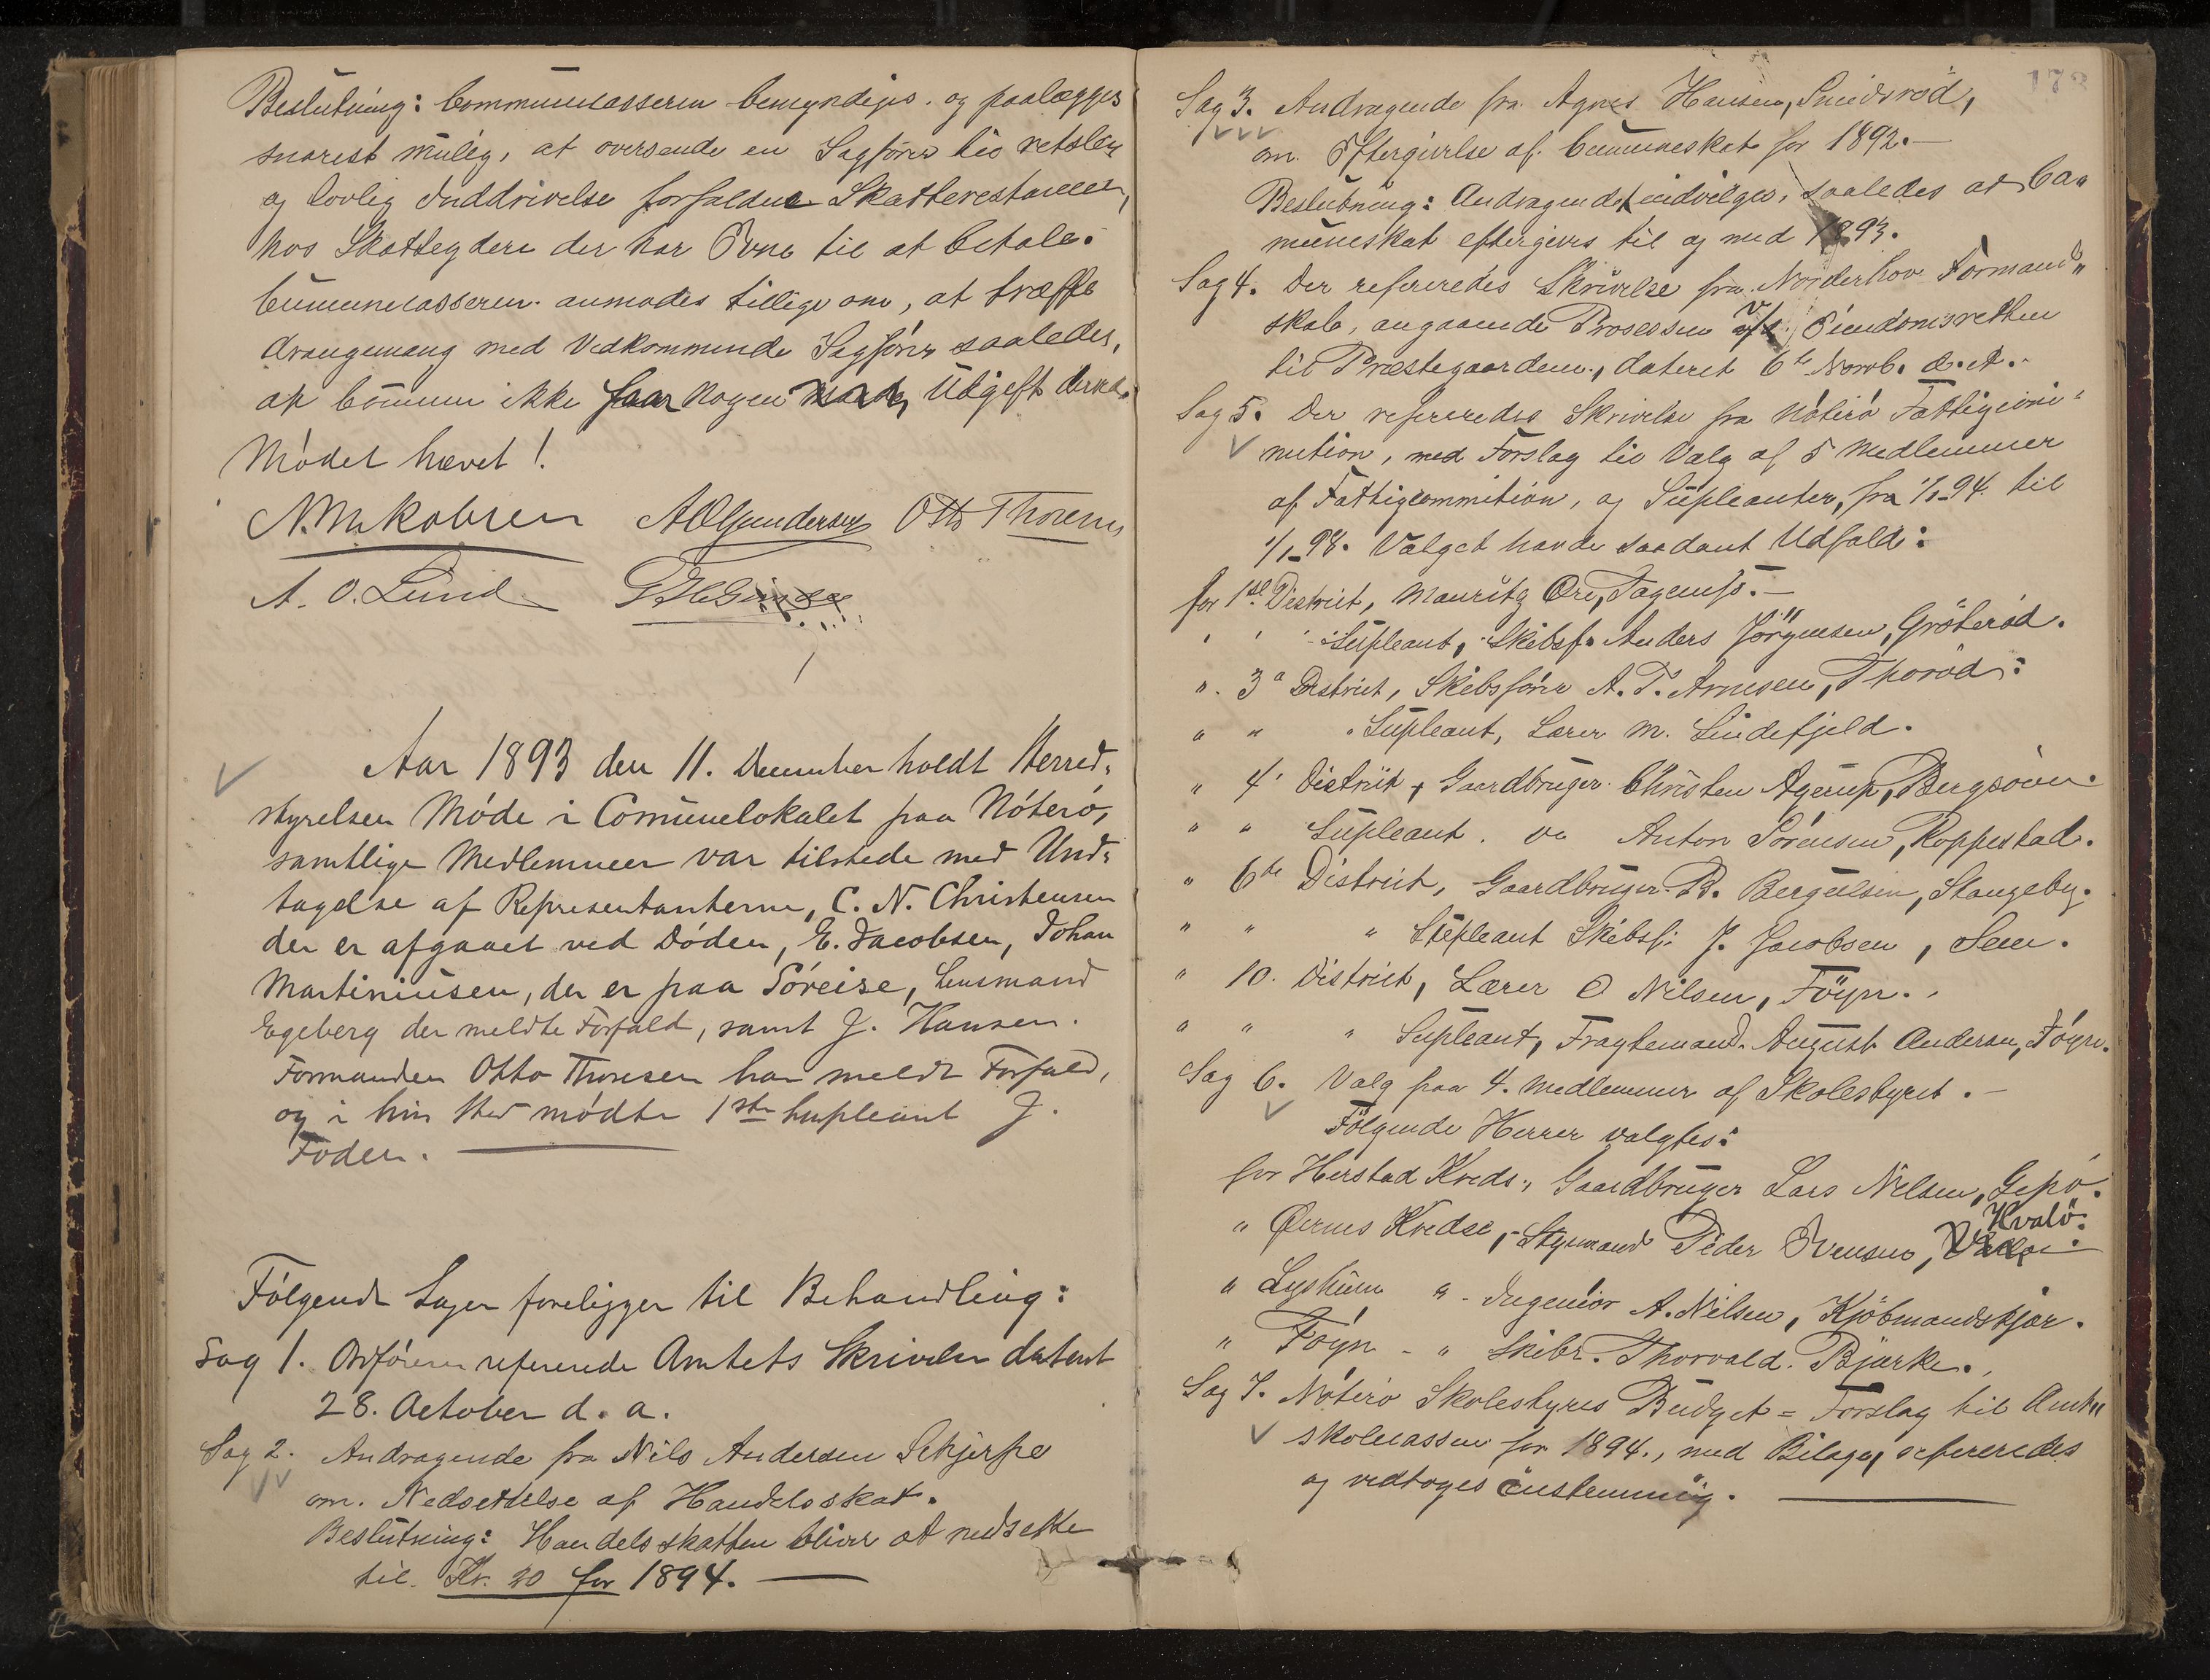 Beslutning: Communecasseren bemyndiges og paalægges
snarest mulig, at oversende en Sagfører til retslig
og lovlig Inddrivelse forfaldne Skatterestancer,
hos Skatteydere der har Evne til at betale.
Cummunecasseren anmodes tillige om, at træffe
Arangemang med Vedkommende Sagfører saaledes,
at Commun ikke faar nogen Udgift derved.
Mødet hævet!
N. M. Jakobsen A O Gundersen Otto Thoresen
A. O. Lund
Aar 1893 den 11. December holdt Herreds-
styrelsen Møde i Comunelokalet paa Nøterø,
samtlige Medlemmer var tilstede med Und-
tagelse af Representanterne, C. N. Christensen
der er afgaaet ved Døden, E. Jacobsen, Johan
Martiniusen, der er paa Søreise, Lensmand
Egeberg der meldte Forfald, samt J. Hansen.
Formanden Otto Thoresen har meldt Forfald,
og i hins Sted mødte 1ste Supleant J.
Foden.
Følgende Sager foreligger til Behandling:
Sag 1. Ordføreren refererede Amtets Skrivelse datert
28. October d. a.
Sag 2. Andragende fra Nils Andersen Skjerpe
om Nedsettelse af Handelsskat.
Beslutning: Handelsskatten bliver at nedsette
til Kr. 20 for 1894.
173
Sag 3. Andragende fra Agnes Hansen, Smidsrød,
om Eftergivelse af Cummuneskat for 1892.
Beslutning: Andragendet indvilges, saaledes at Co„
muneskat eftergives til og med 1893.
Sag 4. Der refereredes Skrivelse fra Norderhov Formand„
skab, angaaende Prosessen Eiendomsretten
til Præstegaarden, dateret 6te Novb. d. A.
Sag 5. Der refereredes Skrivelse fra Nøterø Fattigcom-
mition, med Forslag til Valg af 5 Medlemmer
af Fattigcommition, og Supleanter, fra 1/1-94 til
1/1-98. Valget havde saadant Udfald:
for 1ste District, Mauritz Øre,
" " Supleant, Skibsf. Anders Jørgensen, Grøterød.
" 3" District, Skibsfører A. T. Arnesen, Thorød:
" " " Supleant, Lærer M. Lindefjeld.
" 4" District, Gaardbruger Christen Agerup, Bergsøen.
" " Supleant do Anton Sørensen, Roppestad.
" 6te District, Gaardbruger B. Bergelsen, Stangeby.
" " " Supleant Skibsf. J. Jacobsen, Sem.
" 10. District, Lærer O Nilsen, Føyn.
" " " Supleant, Fragtemand August Andersen, Føyn.
Sag 6. Valg paa 4. Medlemmer af Skolestyret.
Følgende Herrer valgtes:
for Herstad Kreds, Gaardbruger Lars Nilsen, Gipø.
" Øernes Kredse, Styrmand Peder Evensen, Hvalø.
" Lyshuen " Ingeniør A. Nilsen, Kjøbmandskjær.
" Føyn - " Skibr. Thorvald Bjærke.
Sag 7. Nøterø Skolestyres Budget = Forslag til Amts„
skolecassen for 1894., med Bilager, refereredes
og vedtoges Enstemmig.